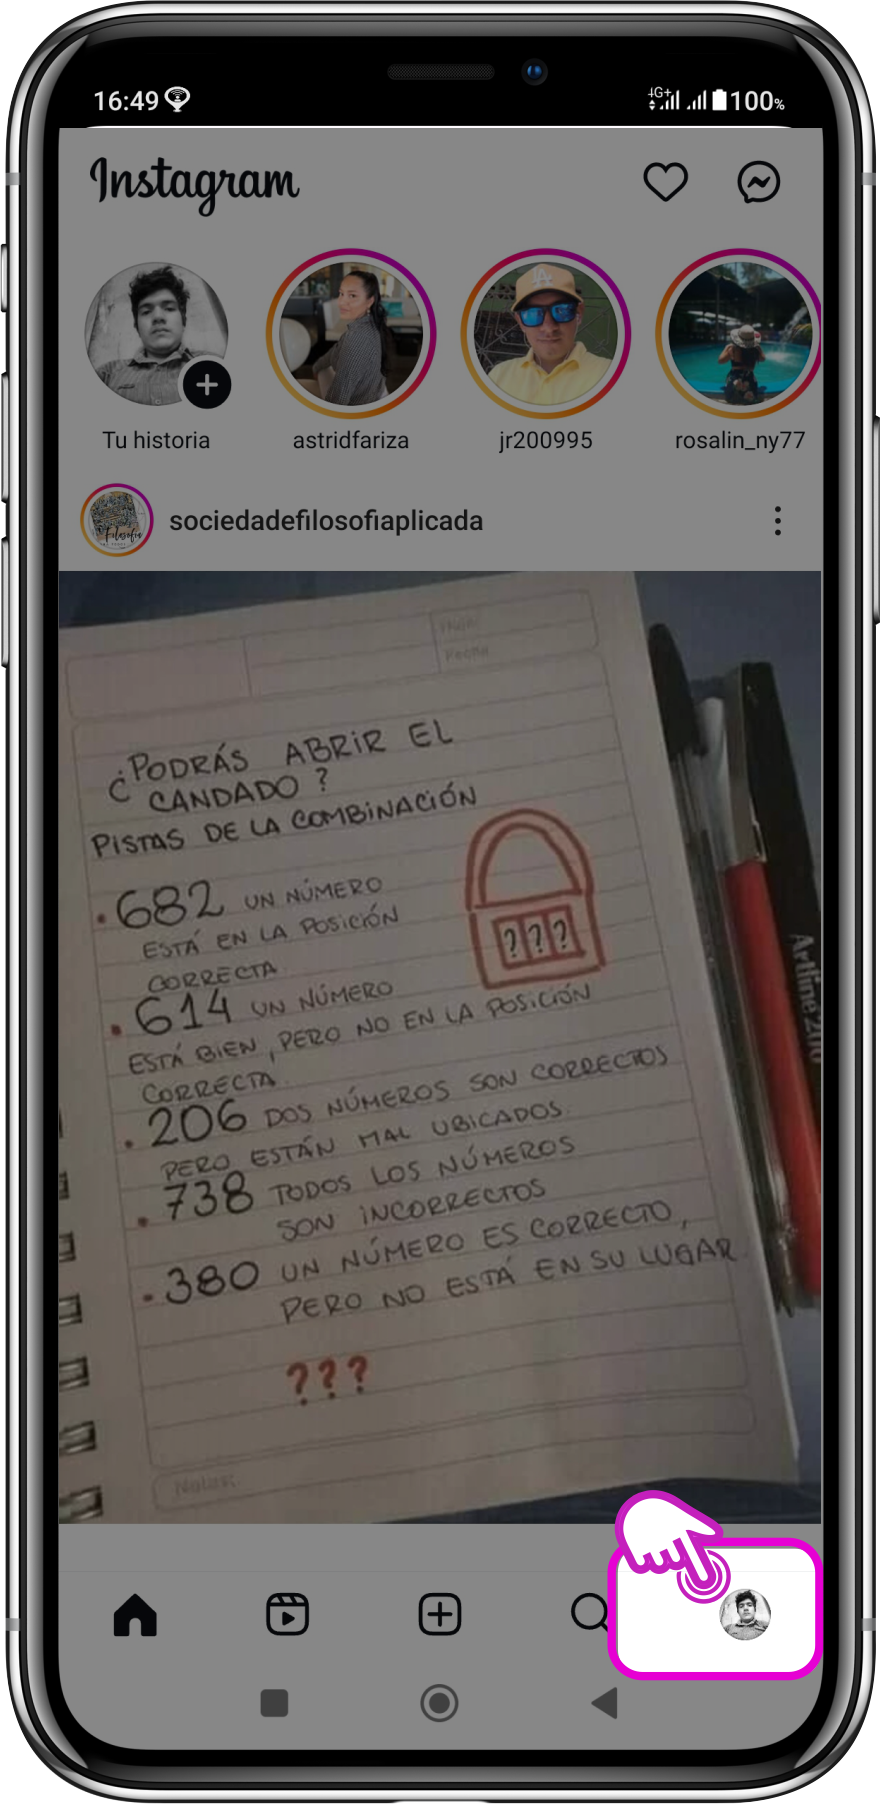 16:49 4G+ 100%
Instagram
Tu historia astridfariza jr200995 rosalin_ny77
sociedadefilosofiaplicada
Hoja:
Fecha
¿PODRÁS ABRIR EL
CANDADO?
PISTAS DE LA COMBINACIÓN
• 682 UN NÚMERO
ESTÁ EN LA POSICIÓN
CORRECTA
???
• 614 UN NÚMERO
ESTÁ BIEN, PERO NO EN LA POSICIÓN
CORRECTA.
• 206 DOS NÚMEROS SON CORRECTOS
PERO ESTÁN MAL UBICADOS.
• 738 TODOS LOS NÚMEROS
SON INCORRECTOS
• 380 UN NÚMERO ES CORRECTO,
PERO NO ESTÁ EN SU LUGAR
???
Notas:
Artline 210